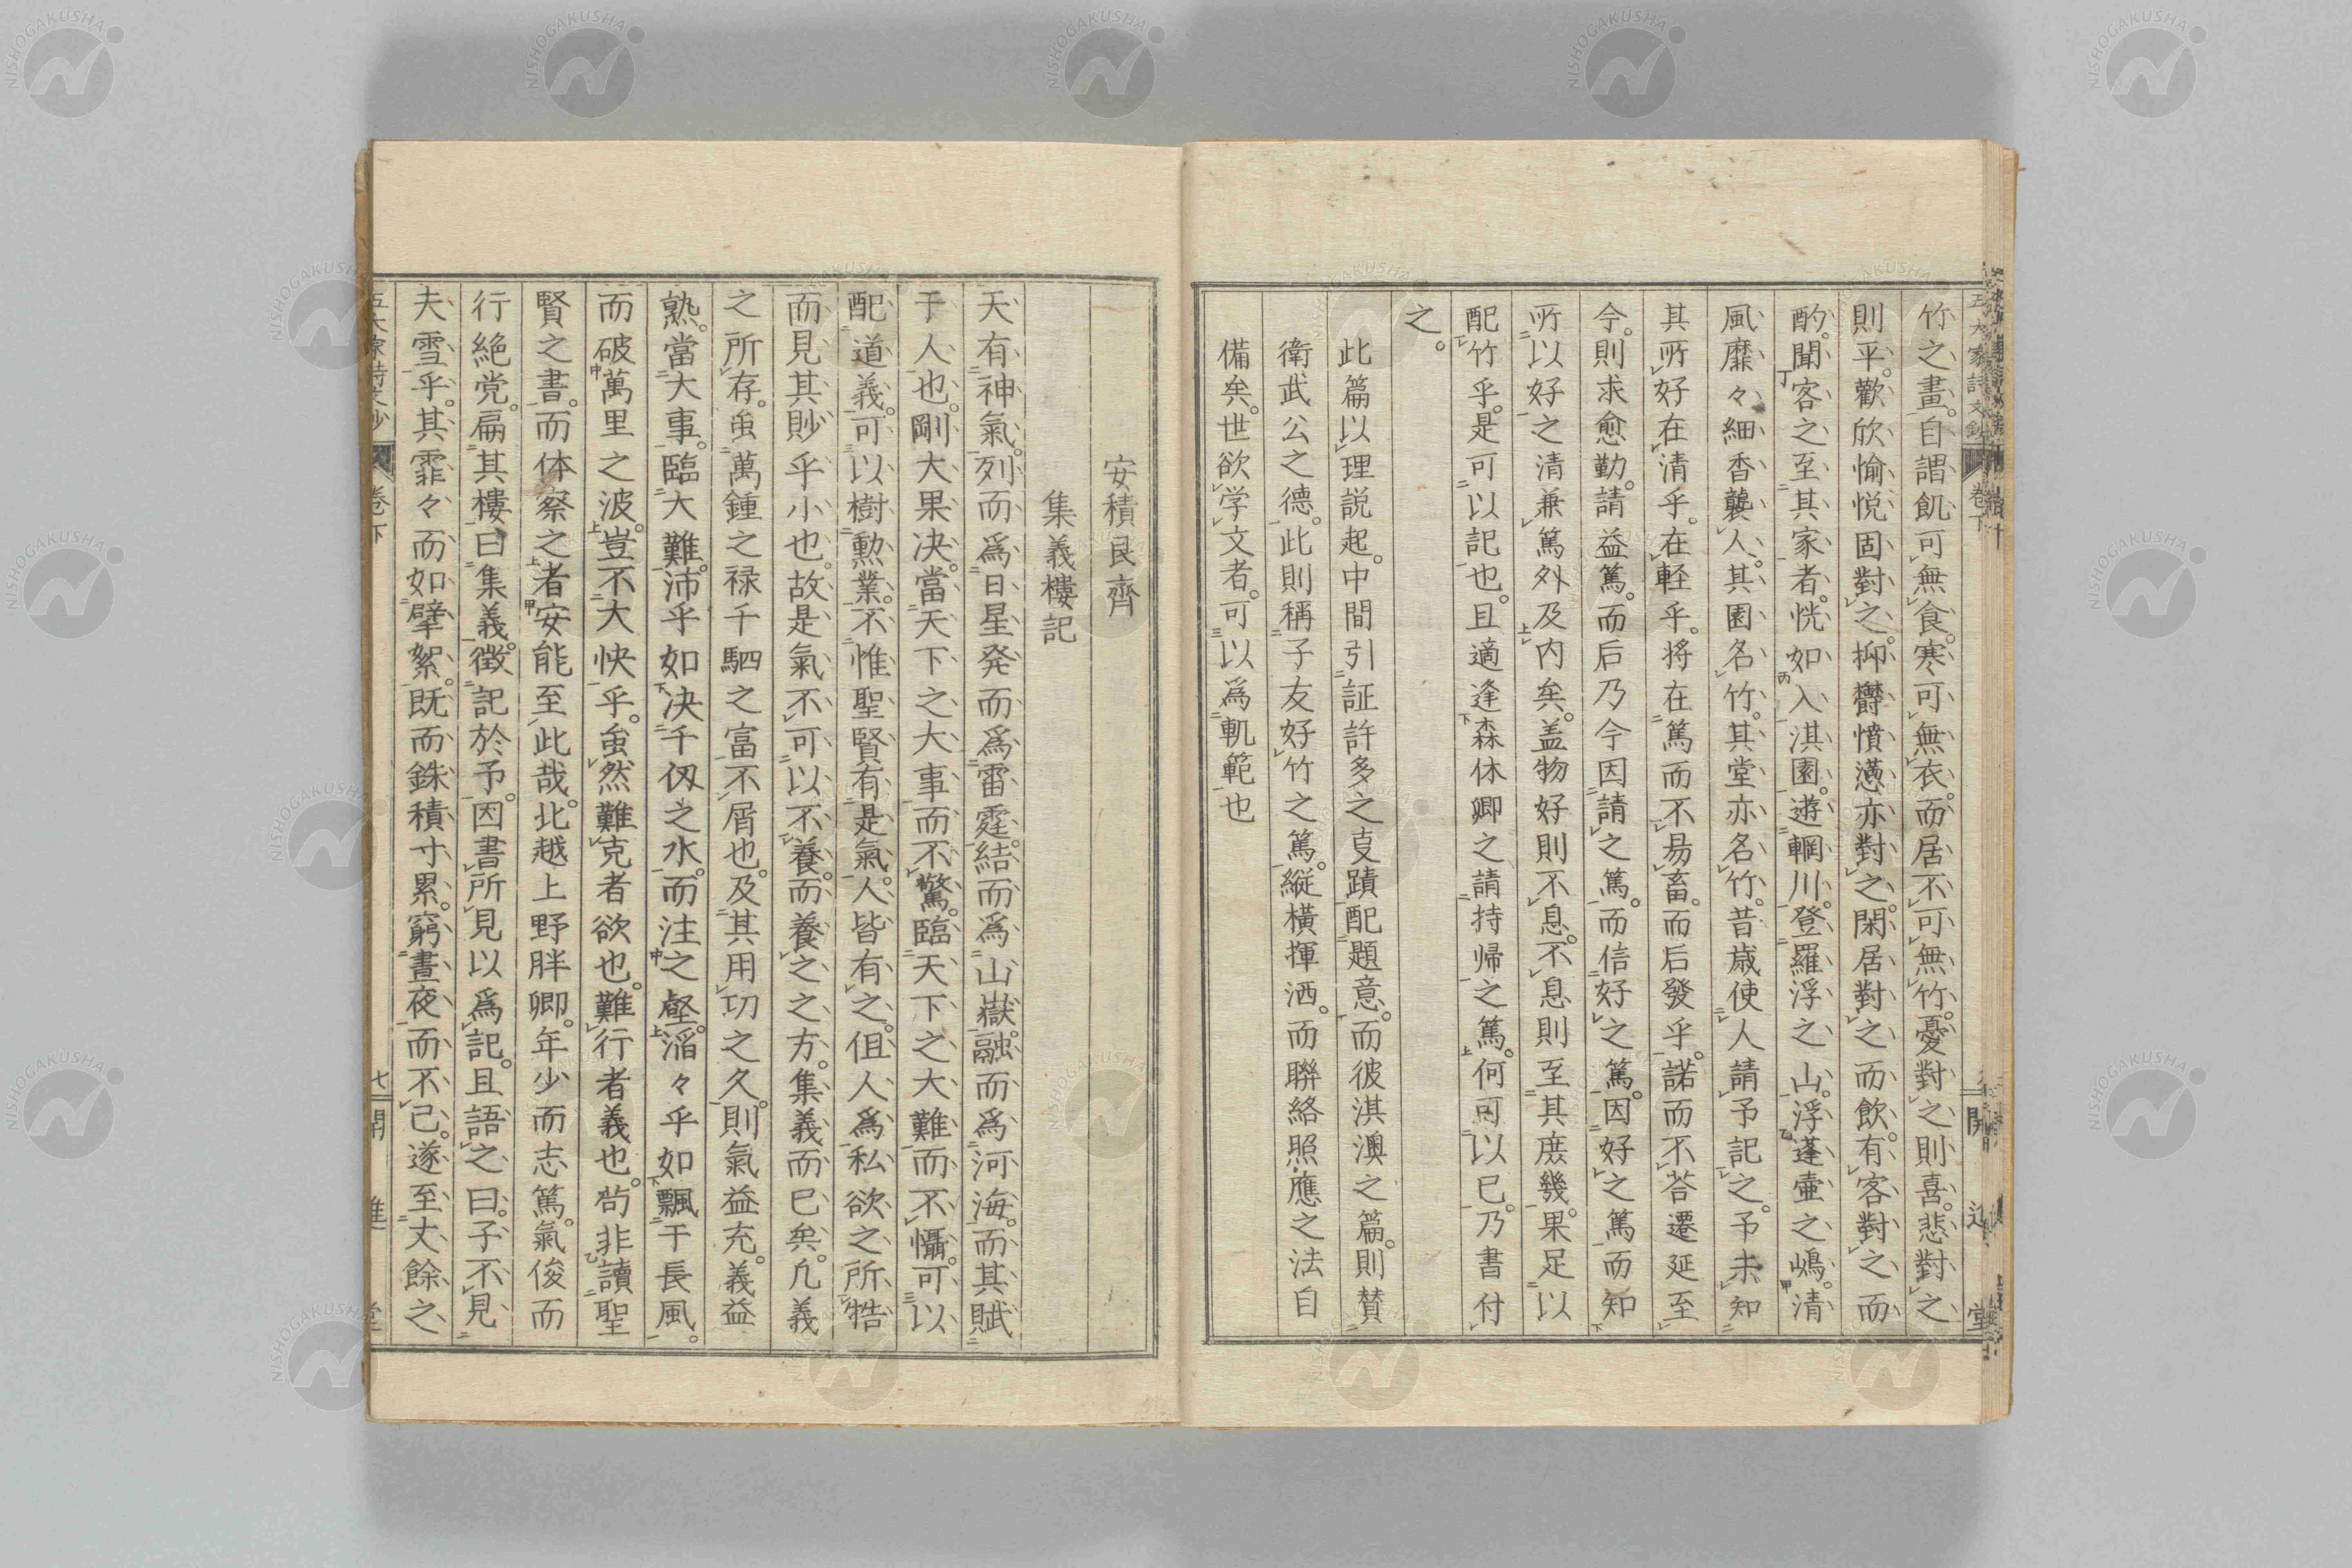 竹之畫。自謂飢可無食。寒可無衣。而居不可無竹。憂對之則喜。悲對之
則平。歡欣愉悦固對之。抑欝憤懣亦對之。閑居對之而飲。有客對之而
酌。聞客之至其家者。恍如入淇園。遊輞川。登羅浮之山。浮蓬壷之嶋。清
風靡々細香襲人。其園名竹。其堂亦名竹。昔歳使人請予記之。予未知
其所好在清乎。在軽乎。将在篤而不易畜。而后發乎。諾而不荅遷延至
今。則求愈勤。請益篤。而后乃今因請之篤。而信好之篤。因好之篤而知
所以好之清兼篤外及内矣。盖物好則不息。不息則至其庶幾。果足以
配竹乎。是可以記也。且適逢森休卿之請持帰之篤。何可以已。乃書付
之。
此篇以理説起。中間引証許多之㕝蹟配題意。而彼淇澳之篇。則賛
衛武公之德。此則稱子友好竹之篤。縦横揮洒。而聯絡照應之法自
備矣。世欲学文者。可以爲軌範也
五大家詩文鈔
卷下
開進堂
安積艮齊
集義樓記
天有神氣。列而爲日星発而爲雷霆。結而爲山嶽。融而爲河海。而其賦
于人也。剛大果决。當天下之大事而不驚。臨天下之大難而不懾。可以
配道義。可以樹勲業。不惟聖賢有是氣。人皆有之。但人爲私欲之所牿
而見其眇乎小也。故是氣不可以不養。而養之之方。集義而已矣。凡義
之所存。虽萬鍾之禄千駟之富不屑也。及其用功之久。則氣益充。義益
熟。當大事。臨大難。沛乎如决千仭之水。而注之壑。滔々乎如飄干長風。
而破萬里之波。豈不大快乎。虽然難克者欲也。難行者義也。苟非讀聖
賢之書。而体察之者安能至此哉。北越上野胖卿。年少而志篤。氣俊而
行絶党。扁其樓曰集義。徴記於予。因書所見以爲記。且語之曰。子不見
夫雪乎。其霏々而如擘絮。既而銖積寸累。窮晝夜而不已。遂至丈餘之
五大家詩文鈔
卷下
七
開進堂